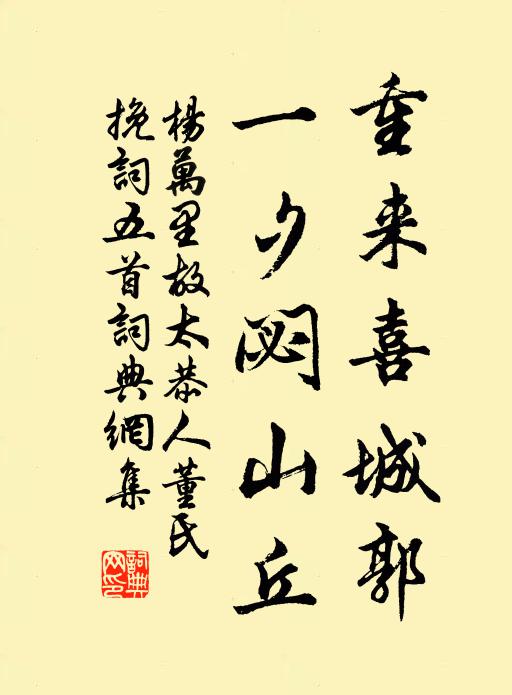 重来喜城郭
一夕閟山丘
楊萬里故太恭人董氏
挽詞五首詞典網集
詞典
网印